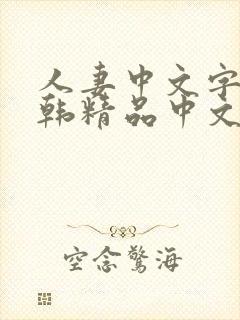 人妻中文字
韩精品中文
空念驚海